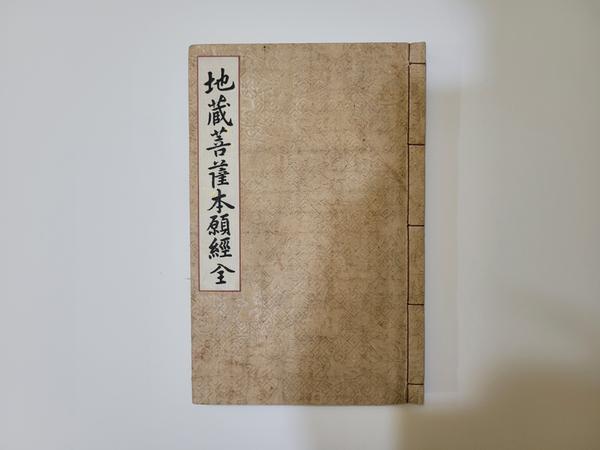 地蔵菩薩本願經全